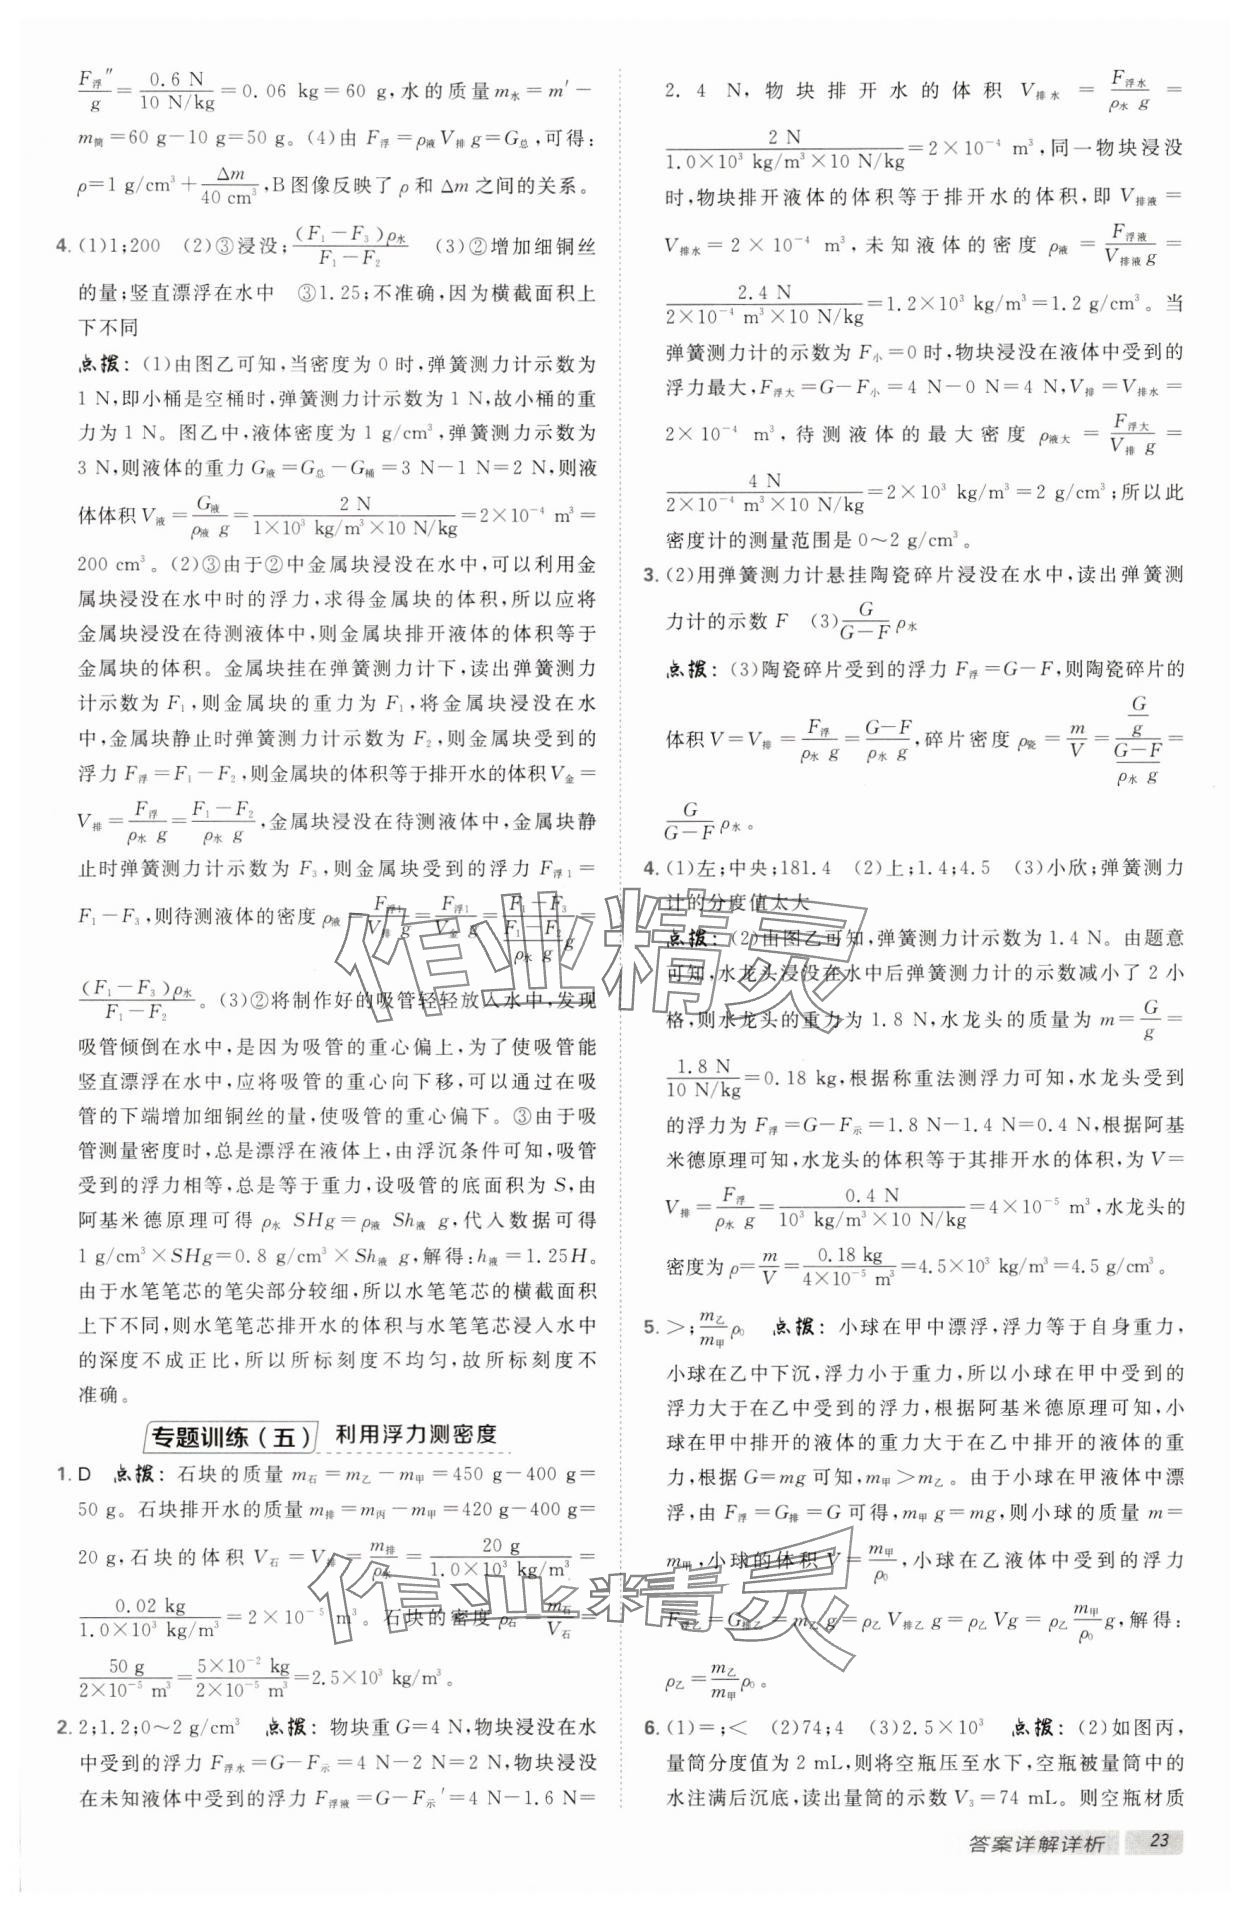 F浮″/g=0.6 N/10 N/kg=0.06 kg=60 g,水的质量m水=m′-
m筒=60 g-10 g=50 g。(4)由F浮=ρ液V排g=G总,可得:
ρ=1 g/cm³+Δm/40 cm³,B图像反映了ρ和Δm之间的关系。
4.(1)1;200 (2)③浸没;(F₁-F₃)ρ水/F₁-F₂ (3)②增加细铜丝
的量;竖直漂浮在水中 ③1.25;不准确,因为横截面积上
下不同
点拨:(1)由图乙可知,当密度为0时,弹簧测力计示数为
1 N,即小桶是空桶时,弹簧测力计示数为1 N,故小桶的重
力为1 N。图乙中,液体密度为1 g/cm³,弹簧测力示数为
3 N,则液体的重力G液=G总-G桶=3 N-1 N=2 N,则液
体体积V液=G液/ρ液 g=2 N/1×10³ kg/m³×10 N/kg=2×10⁻⁴ m³=
200 cm³。(2)③由于②中金属块浸没在水中,可以利用金
属块浸没在水中时的浮力,求得金属块的体积,所以应将
金属块浸没在待测液体中,则金属块排开液体的体积等于
金属块的体积。金属块挂在弹簧测力计下,读出弹簧测力
计示数为F₁,则金属块的重力为F₁,将金属块浸没在水
中,金属块静止时弹簧测力计示数为F₂,则金属块受到的
浮力F浮=F₁-F₂,则金属块的体积等于排开水的体积V金=
V排=F浮/ρ水 g=F₁-F₂/ρ水 g,金属块浸没在待测液体中,金属块静
止时弹簧测力计示数为F₃,则金属块受到的浮力F浮1=
F₁-F₃,则待测液体的密度ρ液=F浮1/V排 g=F浮1/V金 g=F₁-F₃/(F₁-F₂/ρ水 g)g=
(F₁-F₃)ρ水/F₁-F₂。(3)②将制作好的吸管轻轻放入水中,发现
吸管倾倒在水中,是因为吸管的重心偏上,为了使吸管能
竖直漂浮在水中,应将吸管的重心向下移,可以通过在吸
管的下端增加细铜丝的量,使吸管的重心偏下。③由于吸
管测量密度时,总是漂浮在液体上,由浮沉条件可知,吸管
受到的浮力相等,总是等于重力,设吸管的底面积为S,由
阿基米德原理可得ρ水 SHg=ρ液 Sh液 g,代入数据可得
1 g/cm³×SHg=0.8 g/cm³×Sh液 g,解得:h液=1.25H。
由于水笔笔芯的笔尖部分较细,所以水笔笔芯的横截面积
上下不同,则水笔笔芯排开水的体积与水笔笔芯浸入水中
的深度不成正比,所以所标刻度不均匀,故所标刻度不
准确。
专题训练(五) 利用浮力测密度
1.D 点拨:石块的质量m石=m乙-m甲=450 g-400 g=
50 g。石块排开水的质量m排=m丙-m甲=420 g-400 g=
20 g,石块的体积V石=V排=m排/ρ水=20 g/1.0×10³ kg/m³=
0.02 kg/1.0×10³ kg/m³=2×10⁻⁵ m³。石块的密度ρ石=m石/V石=
50 g/2×10⁻⁵ m³=5×10⁻² kg/2×10⁻⁵ m³=2.5×10³ kg/m³。
2.2;1.2;0~2 g/cm³ 点拨:物块重G=4 N,物块浸没在水
中受到的浮力F浮水=G-F示=4 N-2 N=2 N,物块浸没
在未知液体中受到的浮力F浮液=G-F示′=4 N-1.6 N=
2.4 N,物块排开水的体积V排水=F浮水/ρ水 g=
2 N/1.0×10³ kg/m³×10 N/kg=2×10⁻⁴ m³,同一物块浸没
时,物块排开液体的体积等于排开水的体积,即V排液=
V排水=2×10⁻⁴ m³,未知液体的密度ρ液=F浮液/V排液 g=
2.4 N/2×10⁻⁴ m³×10 N/kg=1.2×10³ kg/m³=1.2 g/cm³。当
弹簧测力计的示数为F小=0时,物块浸没在液体中受到的
浮力最大,F浮大=G-F小=4 N-0 N=4 N,V排=V排水=
2×10⁻⁴ m³,待测液体的最大密度ρ液大=F浮大/V排 g=
4 N/2×10⁻⁴ m³×10 N/kg=2×10³ kg/m³=2 g/cm³;所以此
密度计的测量范围是0~2 g/cm³。
3.(2)用弹簧测力计悬挂陶瓷碎片浸没在水中,读出弹簧测
力计的示数F (3)G/G-F ρ水
点拨:(3)陶瓷碎片受到的浮力F浮=G-F,则陶瓷碎片的
体积V=V排=F浮/ρ水 g=G-F/ρ水 g,碎片密度ρ瓷=m/V=(G/g)/(G-F/ρ水 g)=
G/G-F ρ水。
4.(1)左;中央;181.4 (2)上;1.4;4.5 (3)小欣;弹簧测力
计的分度值太大
点拨:(2)由图乙可知,弹簧测力计示数为1.4 N。由题意
可知,水龙头浸没在水中后弹簧测力计的示数减小了2小
格,则水龙头的重力为1.8 N,水龙头的质量为m=G/g=
1.8 N/10 N/kg=0.18 kg,根据称重法测浮力可知,水龙头受到
的浮力为F浮=G-F示=1.8 N-1.4 N=0.4 N,根据阿基
米德原理可知,水龙头的体积等于其排开水的体积,为V=
V排=F浮/ρ水 g=0.4 N/10³ kg/m³×10 N/kg=4×10⁻⁵ m³,水龙头的
密度为ρ=m/V=0.18 kg/4×10⁻⁵ m³=4.5×10³ kg/m³=4.5 g/cm³。
5.>;m乙/m甲 ρ₀ 点拨:小球在甲中漂浮,浮力等于自身重力,
小球在乙中下沉,浮力小于重力,所以小球在甲中受到的
浮力大于在乙中受到的浮力,根据阿基米德原理可知,小
球在甲中排开的液体的重力大于在乙中排开的液体的重
力,根据G=mg可知,m甲>m乙。由于小球在甲液体中漂
浮,由F浮=G排=G可得,m甲g=mg,则小球的质量m=
m甲,小球的体积V=m甲/ρ₀,小球在乙液体中受到的浮力
F浮乙=G排乙=m乙g=ρ乙V排乙g=ρ乙Vg=ρ乙 m甲/ρ₀ g,解得:
ρ乙=m乙/m甲 ρ₀。
6.(1)=;< (2)74;4 (3)2.5×10³ 点拨:(2)如图丙,
量筒分度值为2 mL,则将空瓶压至水下,空瓶被量筒中的
水注满后沉底,读出量筒的示数V₃=74 mL。则空瓶材质
答案详解详析 23
作业精灵
作业精灵